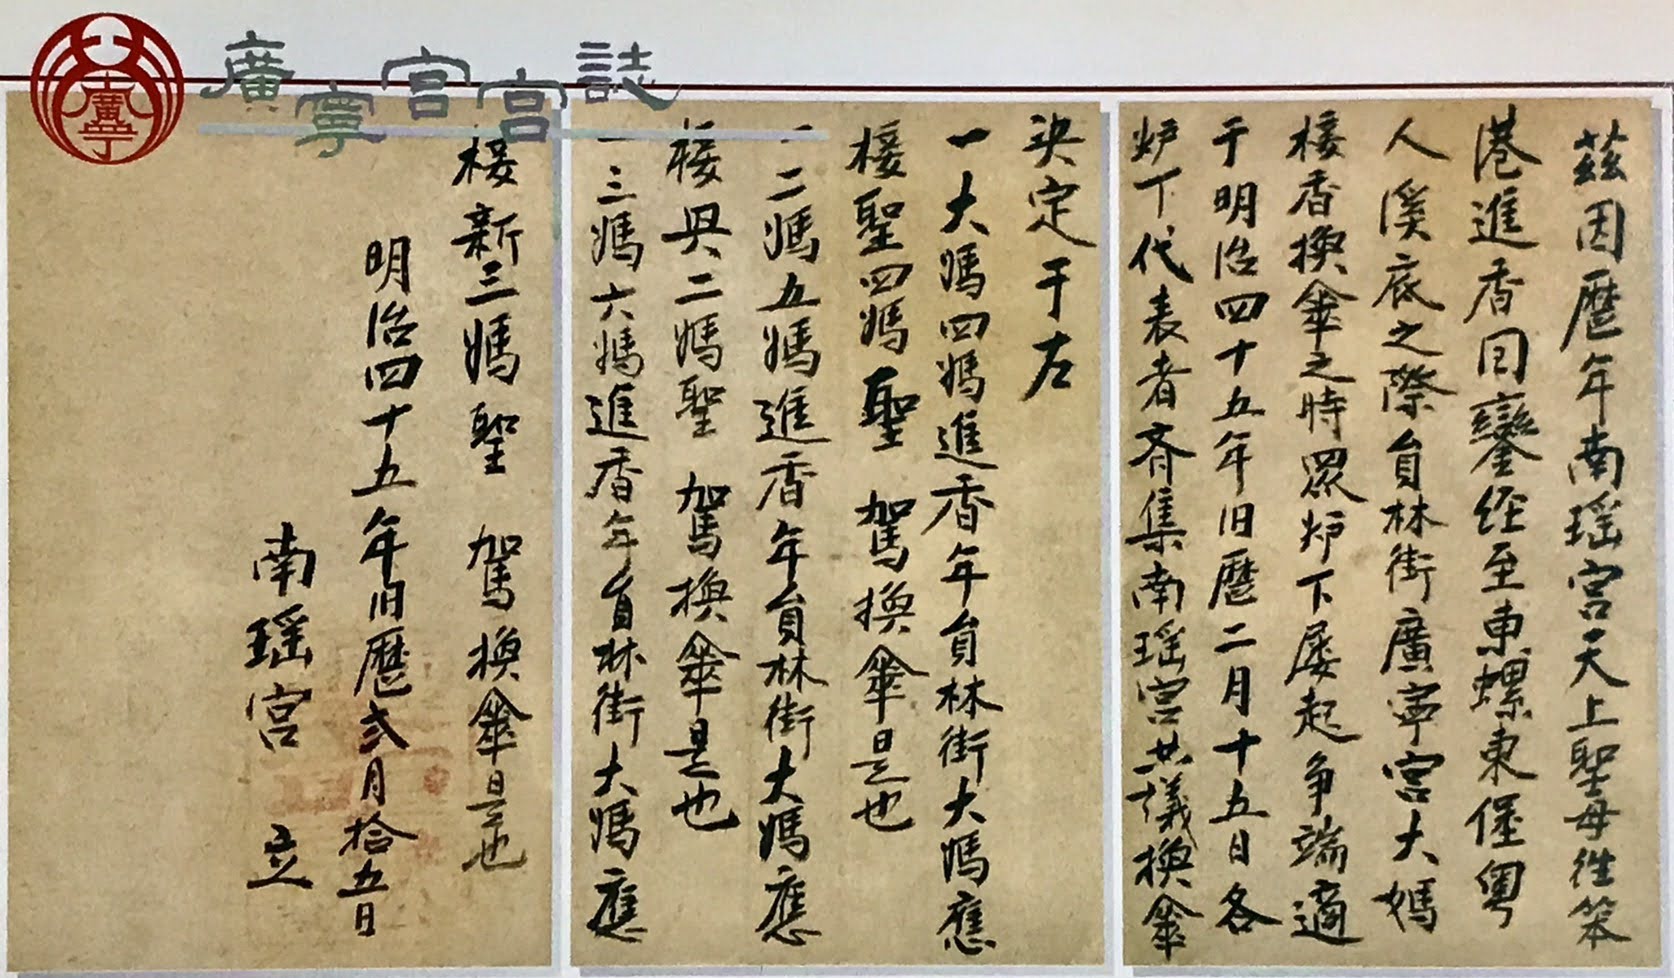 廣寧宮宮誌
廣寧
茲因曆年南瑤宮天上聖母徃笨
港進香回鑾經至東螺東堡粵
人溪底之際員林街廣寧宮大媽
接香換傘之時眾炉下屡起争端適
于明治四十五年旧曆二月十五日各
炉下代表者齐集南瑤宮共議換傘
决定于左
一大媽四媽進香年員林街大媽應
接聖四媽聖 駕換傘是也
一二媽五媽進香年員林街大媽應
接興二媽聖 駕換傘是也
一三媽六媽進香年員林街大媽應
接新三媽聖 駕換傘是也
明治四十五年旧曆弍月拾五日
南瑤宮 立